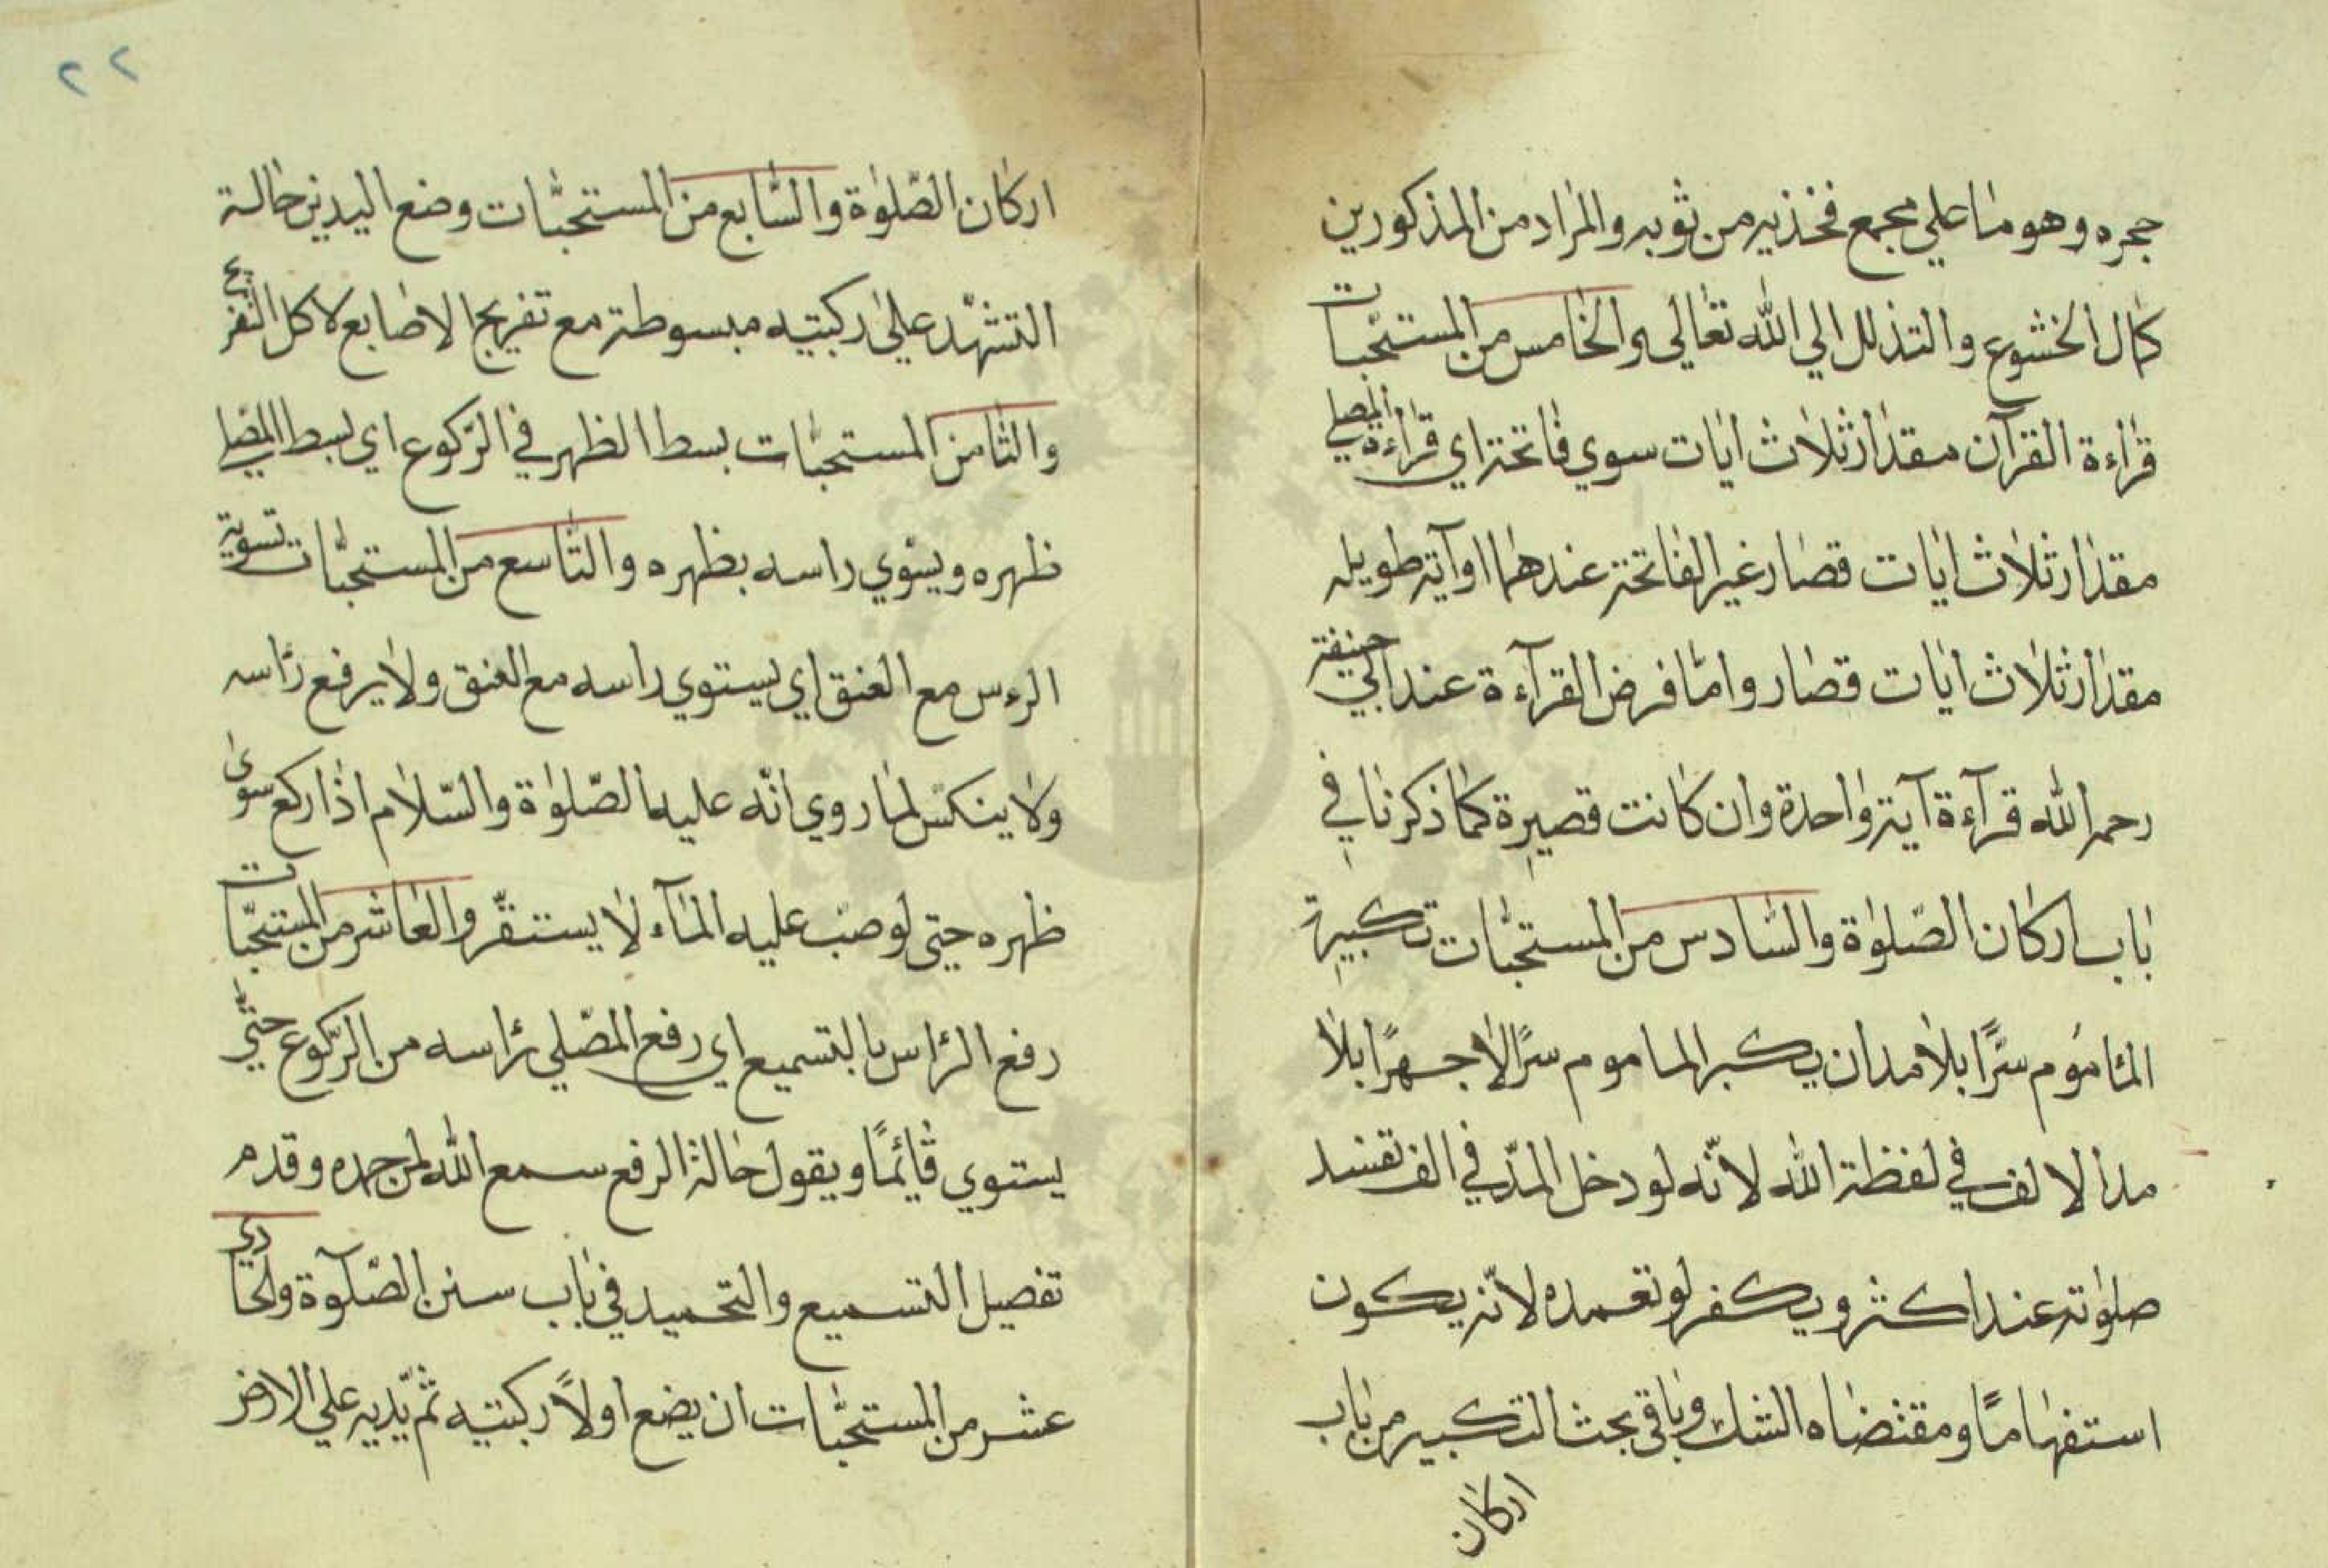 حجره وهو ما على مجمع فخذيه من ثوبه والمراد من المذكورين
كمال الخشوع والتذلل الي الله تعالي والخامس من المستحبّات
قراءة القرآن مقدار ثلاث ايات سوي فاتحة اي قراءة المصلي
مقدار ثلاث ايات قصار غير الفاتحة عندهما او آية طويلة
مقدار ثلاث ايات قصار وامّا فرض القرآءة عند ابي حنيفة
رحمه الله قرآءة آية واحدة وان كانت قصيرة كما ذكرنا في
باب اركان الصّلوة والسّادس من المستحبّات تكبيرة
المأموم سرًّا بلا مد ان يكبر الماموم سرًّا لا جهرًا بلا
مد الالف في لفظة الله لانّه لو دخل المدّ في الف تفسد
صلوته عند اكثر ويكفر لو تعمده لانّه يكون
استفهامًا ومقتضاه الشك وباقي بحث التكبير من باب
اركان
٢٢
اركان الصّلوة والسّابع من المستحبّات وضع اليدين حالة
التشهّد على ركبتيه مبسوطة مع تفريج الاصابع لا كل التفريج
والثامن المستحبّات بسط الظهر في الرّكوع اي بسط المصلي
ظهره ويسوّي راسه بظهره والتاسع من المستحبّات تسوية
الرءس مع العنق اي يستوي راسه مع العنق ولا يرفع رأسه
ولا ينكسّ لما روي انّه عليه الصّلوة والسّلام اذا ركع سوى
ظهره حتي لو صبّ عليه المآء لا يستنقرّ والعاشر من المستحبّات
رفع الرأس بالتسميع اي رفع المصّلي رأسه من الرّكوع حتّي
يستوي قائمًا ويقول حالة الرفع سمع الله لمن حمده وقدم
تفصيل التسميع والتحميد في باب سنن الصّلوة والحادي
عشر من المستحبّات ان يضع اولاً ركبتيه ثم يّديه علي الارض